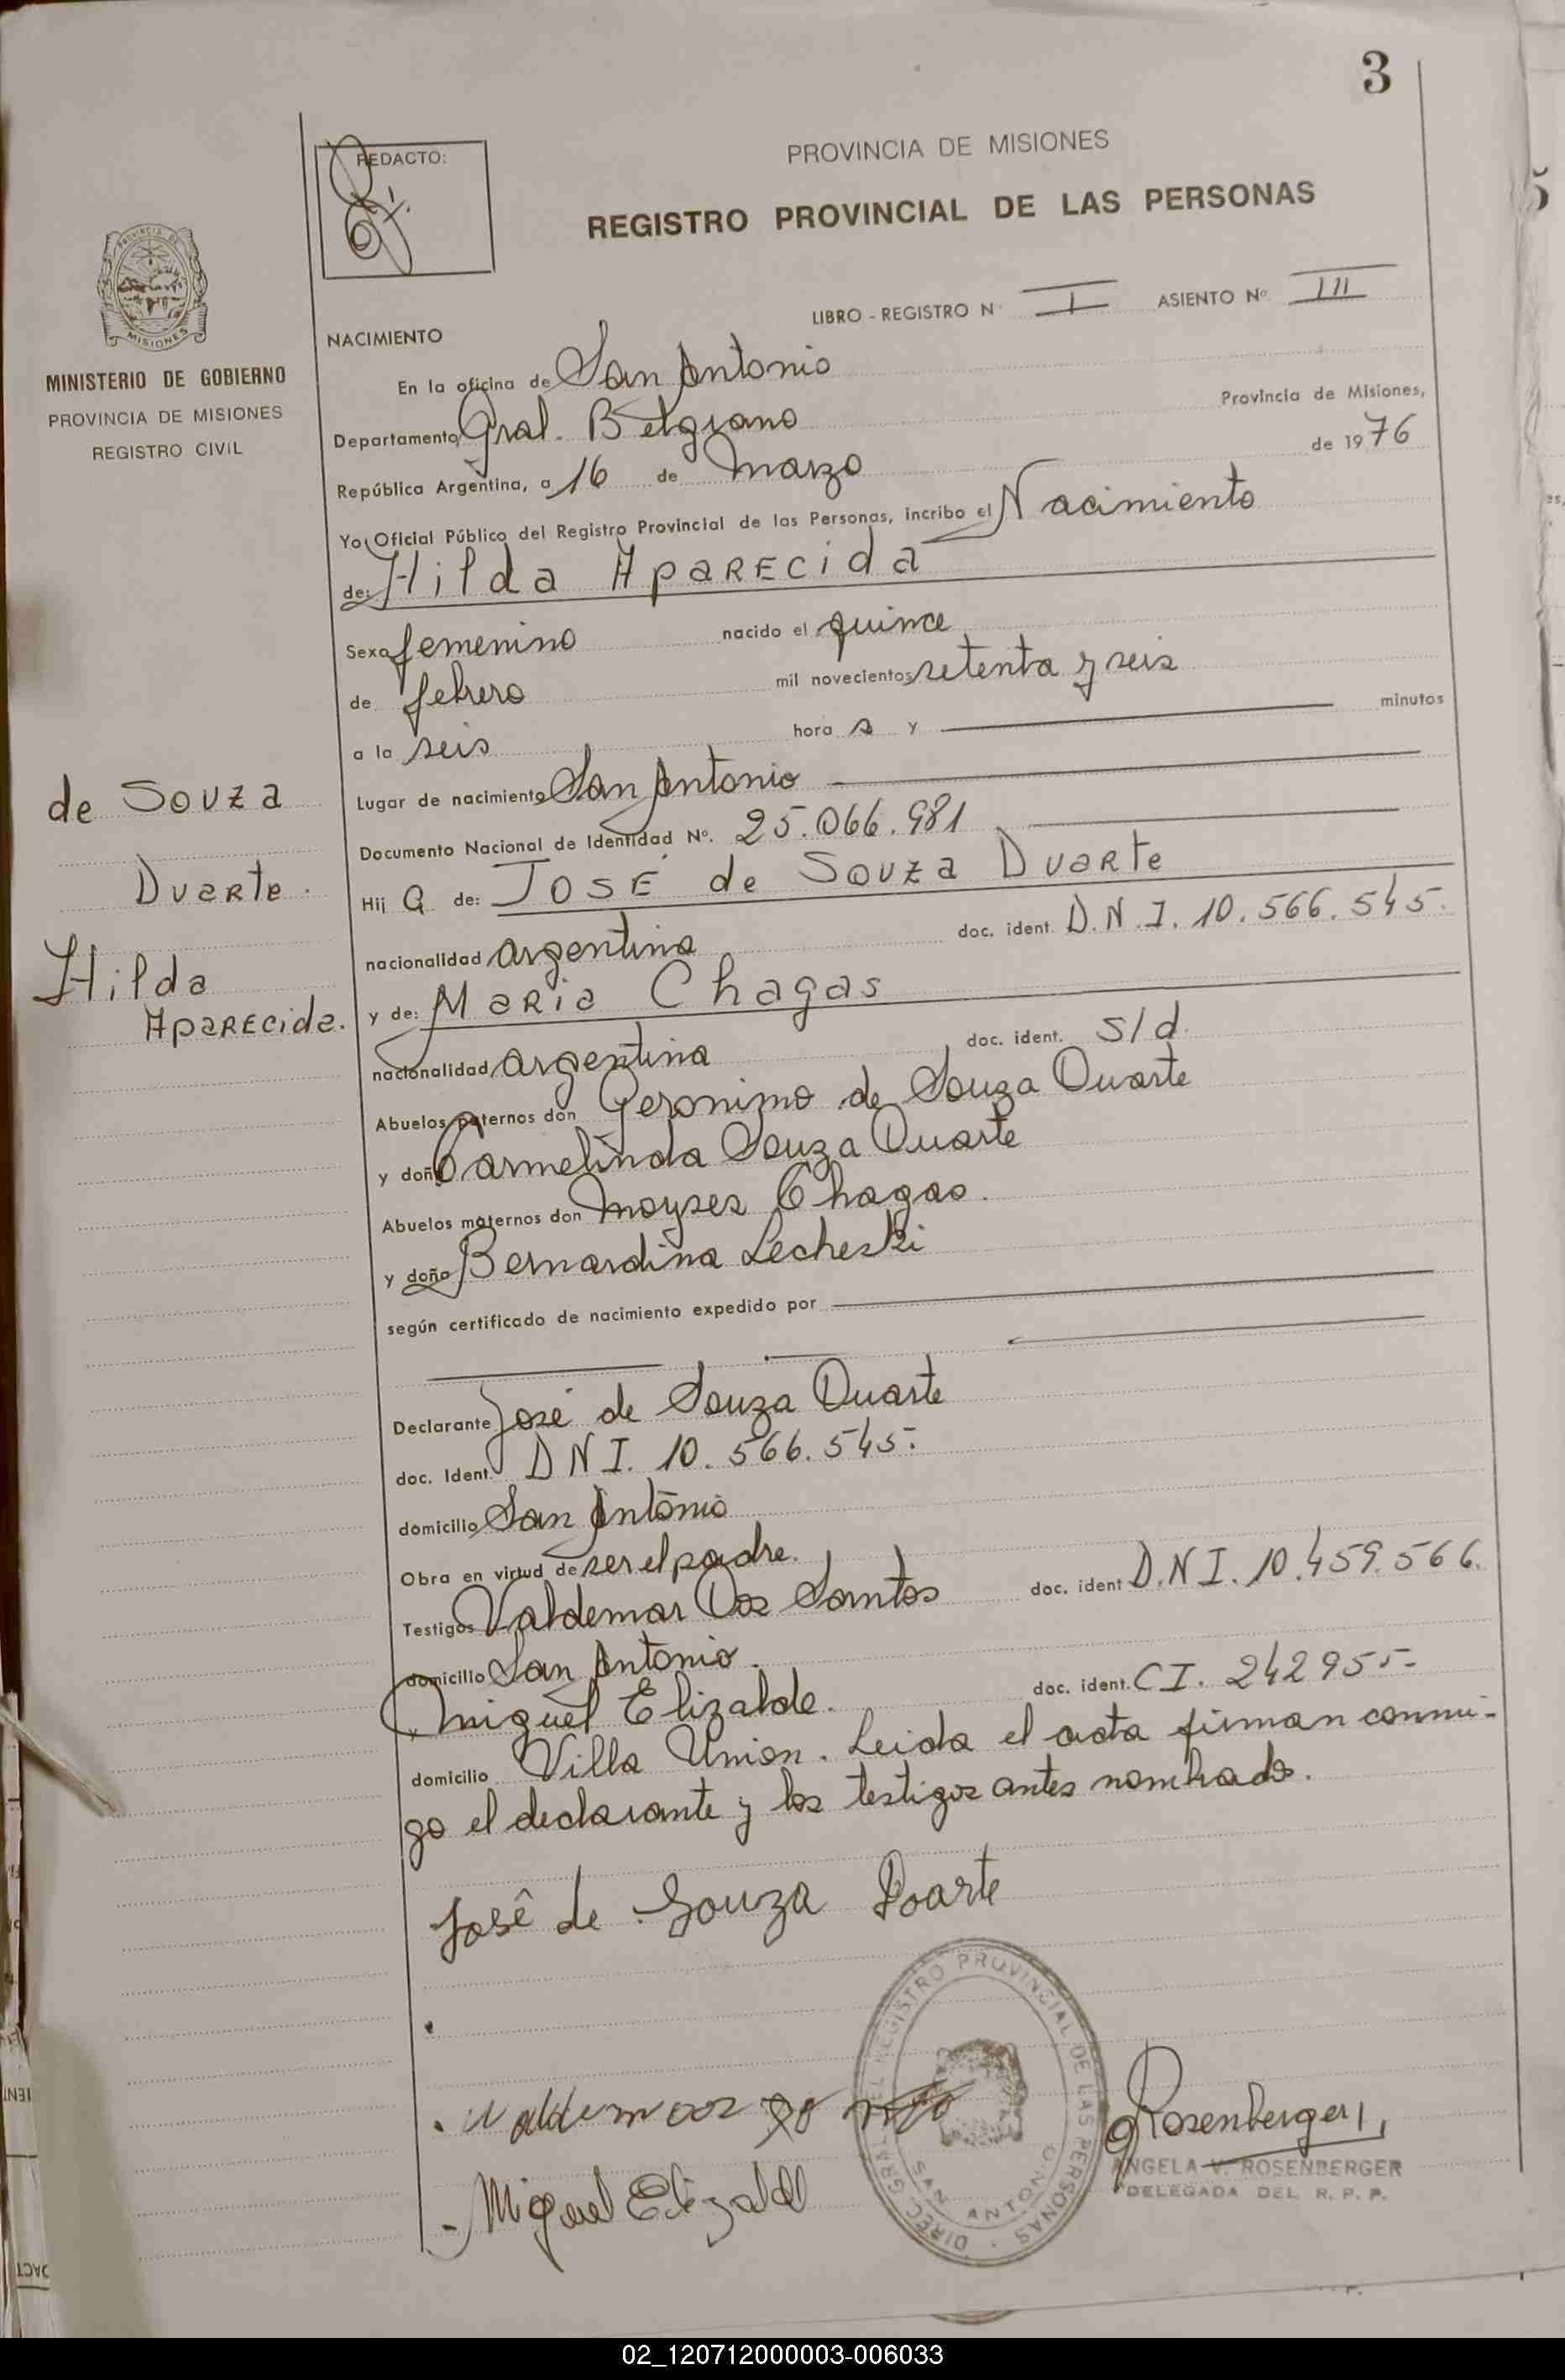 3
REDACTO:
PROVINCIA DE MISIONES
REGISTRO PROVINCIAL DE LAS PERSONAS
PROVINCIA DE
MISIONES
MINISTERIO DE GOBIERNO
PROVINCIA DE MISIONES
REGISTRO CIVIL
LIBRO - REGISTRO N° I ASIENTO N° III
NACIMIENTO
En la oficina de San Antonio
Departamento Gral. Belgrano Provincia de Misiones,
República Argentina, a 16 de marzo de 1976
Yo Oficial Público del Registro Provincial de las Personas, incribo el Nacimiento
de: Hilda Aparecida
Sexo femenino nacido el quince
de febrero mil novecientos setenta y seis
a la seis hora s y minutos
Lugar de nacimiento San Antonio
Documento Nacional de Identidad N°. 25.066.981
Hij a de: José de Souza Duarte
nacionalidad argentina doc. ident. D.N.I. 10.566.545.
y de: Maria Chagas
nacionalidad argentina doc. ident. s/d.
Abuelos paternos don Geronimo de Souza Duarte
y doña Carmelinda Souza Duarte
Abuelos maternos don Moyses Chagas.
y doña Bernardina Lecheski
según certificado de nacimiento expedido por
Declarante José de Souza Duarte
doc. Ident. DNI. 10.566.545.
domicilio San Antonio
Obra en virtud de ser el padre.
Testigos Valdemar Dos Santos doc. ident D.N I. 10.459.566.
domicilio San Antonio.
Miguel Elizalde. doc. ident. CI. 242955-
domicilio Villa Union. Leida el acta firman conmi-
go el declarante y los testigos antes nombrados.
de Souza
Duarte.
Hilda
Aparecida.
José de Souza Doarte
Miguel Elizalde
Rosenberger
ANGELA V. ROSENBERGER
DELEGADA DEL R. P. P.
DIREC GRAL DEL REGISTRO PROVINCIAL DE LAS PERSONAS
SAN ANTONIO
02_120712000003-006033